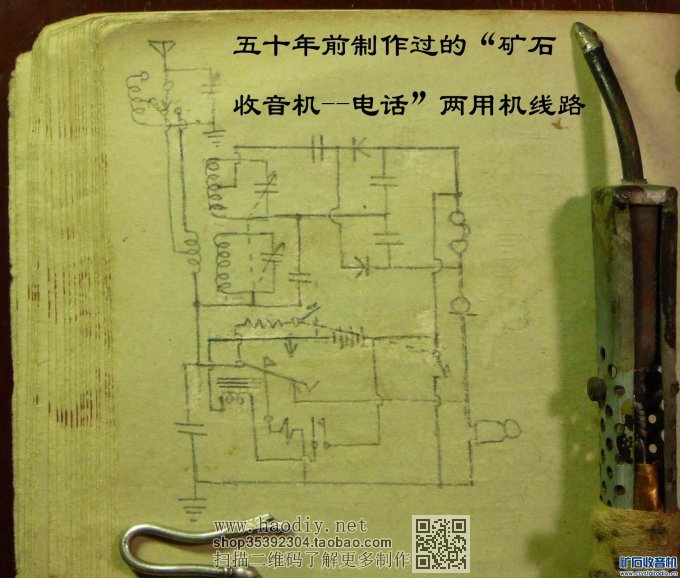 五十年前制作过的“矿石
收音机--电话”两用机线路
www.haodiy.net
shop35392304.taobao.com
扫描二维码了解更多制作
矿石收音机
www.crystalradio.cn